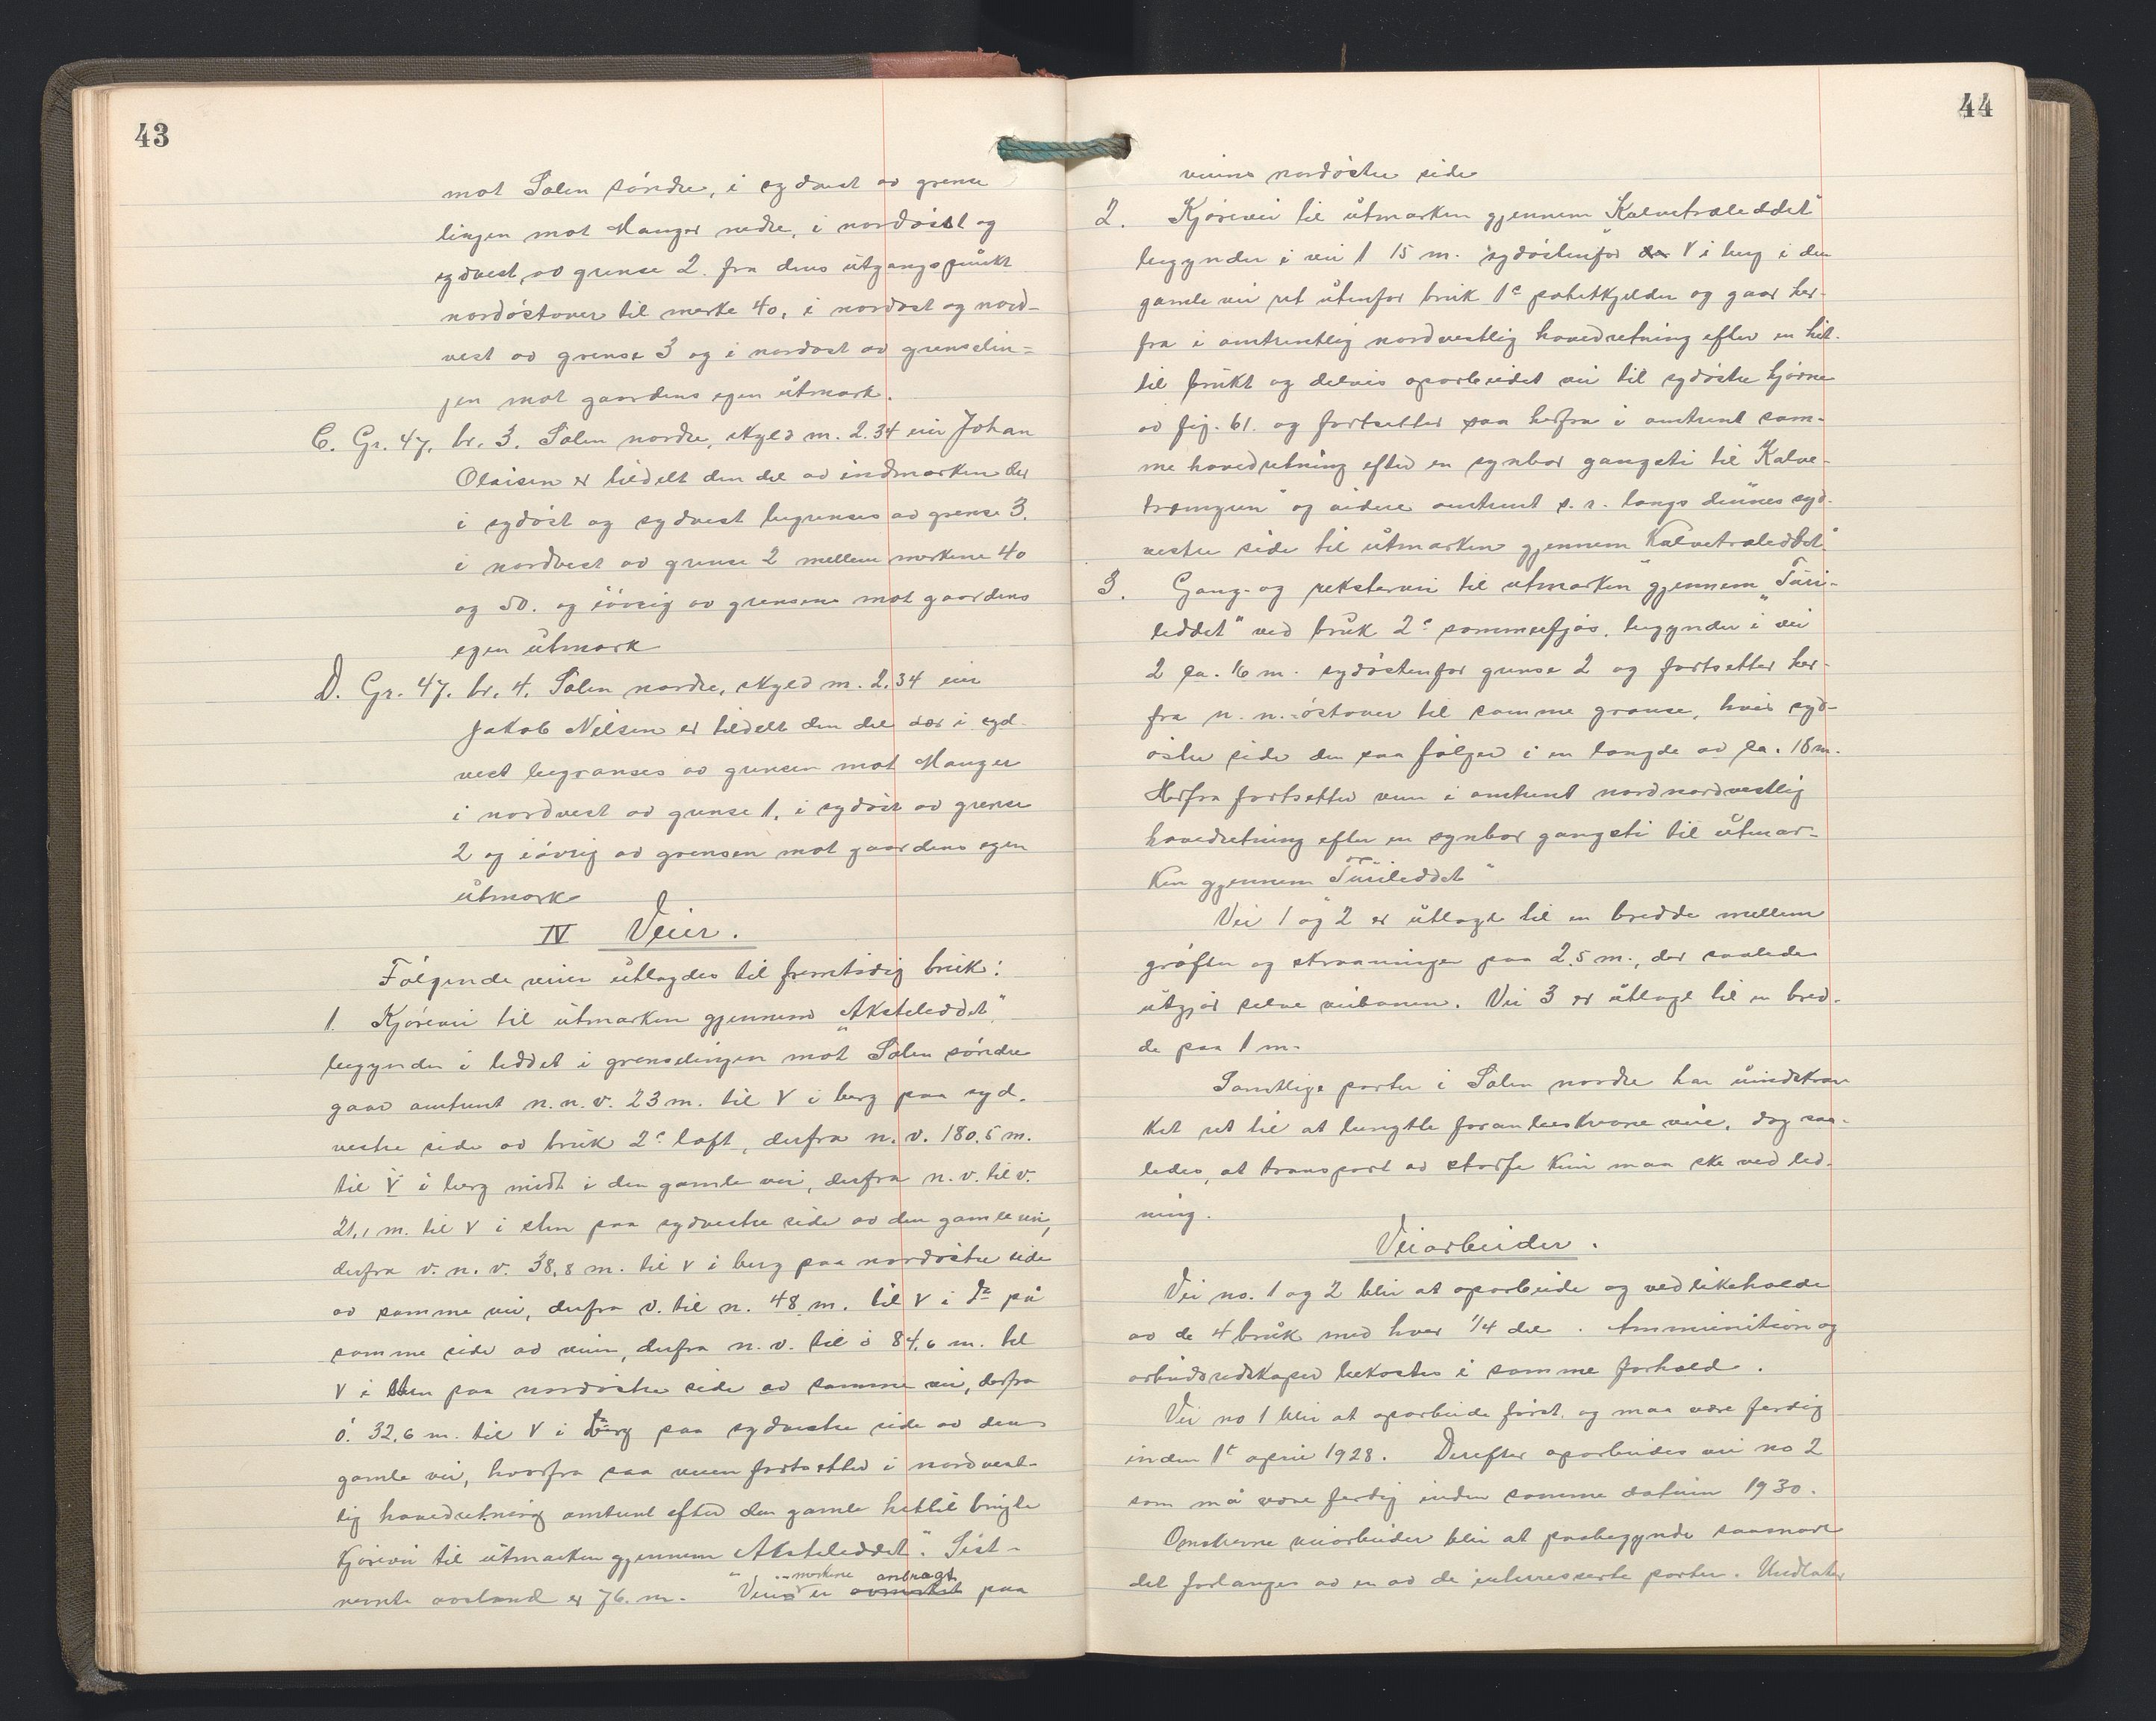 43
mot Solen søndre, i sydvest av grense
linjen mot Manger nedre, i nordøst og
sydvest av grense 2. fra dens utgangspunkt
nordøstover til merke 40, i nordøst og nord-
vest av grense 3 og i nordøst av grenselin-
jen mot gaardens egen utmark.
C. Gr. 47, br. 3. Solen nordre, skyld m. 2.34 eier Johan
Olaisen er tildelt den del av indmarken der
i sydøst og sydvest begrenses av grense 3.
i nordvest av grense 2 mellem merkene 40
og 50. og iøvrig av grensene mot gaardens
egen utmark
D. Gr. 47. br. 4. Solen nordre, skyld m. 2,34 eier
Jakob Nilsen er tildelt den del der i syd-
vest begrænses av grensen mot Manger
i nordvest av grense 1, i sydøst av grense
2 og iøvrig av grensen mot gaardens egen
utmark
IV Veier.
Følgende veier utlagdes til fremtidig bruk:
1. Kjørevei til utmarken gjennem "Aksteleddet"
begynder i leddet i grenselinjen mot Solen søndre
gaar omtrent n.n.v. 23 m. til V i berg paa syd-
vestre side av bruk 2s loft, derfra n.v. 180,5 m.
til V i berg midt i den gamle vei, derfra n.v. til v.
21,1 m. til V i sten paa sydvestre side av den gamle vei,
derfra v.n.v. 38,8 m. til V i berg paa nordøstre side
av samme vei, derfra v. til n. 48 m. til V i do på
samme side av veien, derfra n.v. til ó 84,6 m. til
V i sten paa nordøstre side av samme vei, derfra
ó. 32,6 m. til V i berg paa sydvestre side av den
gamle vei, hvorfra saa veien fortsetter i nordvest-
lig hovedretning omtrent efter den gamle hittil brugte
kjørevei til utmarken gjennem "Aksteleddet". Sist-
nevnte avstand er 76. m. Veimerkene er anbragt paa
44
veiens nordøstre side
2. Kjørevei til utmarken gjennem "Kalvetræleddet"
begynder i vei 1 15 m. sydøstenfor V i berg i den
gamle vei ret utenfor bruk 1s potetkjelder og gaar her-
fra i omtrentlig nordvestlig hovedretning efter en hit-
til brukt og delvis oparbeidet vei til sydøstre hjørne
av fig. 61. og fortsetter saa herfra i omtrent sam-
me hovedretning efter en synbar gangsti til "Kalve-
trængen" og videre omtrent s. r. langs dennes syd-
vestre side til utmarken gjennem "Kalvetræleddet"
3. Gang- og rekstervei til utmarken gjennem "Turi-
leddet" ved bruk 2s sommerfjøs, begynder i vei
2 ca. 16 m. sydøstenfor grense 2 og fortsetter her-
fra n.n.østover til samme grense, hvis syd-
østre side den saa følger i en længde av ca. 18 m.
Herfra fortsetter veien i omtrent nordnordvestlig
hovedretning efter en synbar gangsti til utmar-
ken gjennem "Turileddet"
Vei 1 og 2 er utlagt til en bredde mellem
grøfter og skraaninger paa 2.5 m., der saaledes
utgjør selve veibanen. Vei 3 er utlagt til en bred-
de paa 1 m.
Samtlige parter i Solen nordre har uindskræn-
ket ret til at benytte foranbeskrevne veie, dog saa-
ledes, at transport av storfe kun maa ske ved led-
ning.
Veiarbeider.
Vei no. 1 og 2 blir at oparbeide og vedlikeholde
av de 4 bruk med hver 1/4 del. Ammunition og
arbeidsredskaper bekostes i samme forhold.
Vei no 1 blir at oparbeide først, og maa være ferdig
inden 1st april 1928. Derefter oparbeides vei no 2
som må være ferdig inden samme datum 1930.
Omskrevne veiarbeider blir at paabegynde saasnart
det forlanges av en av de interesserte parter. Undlater